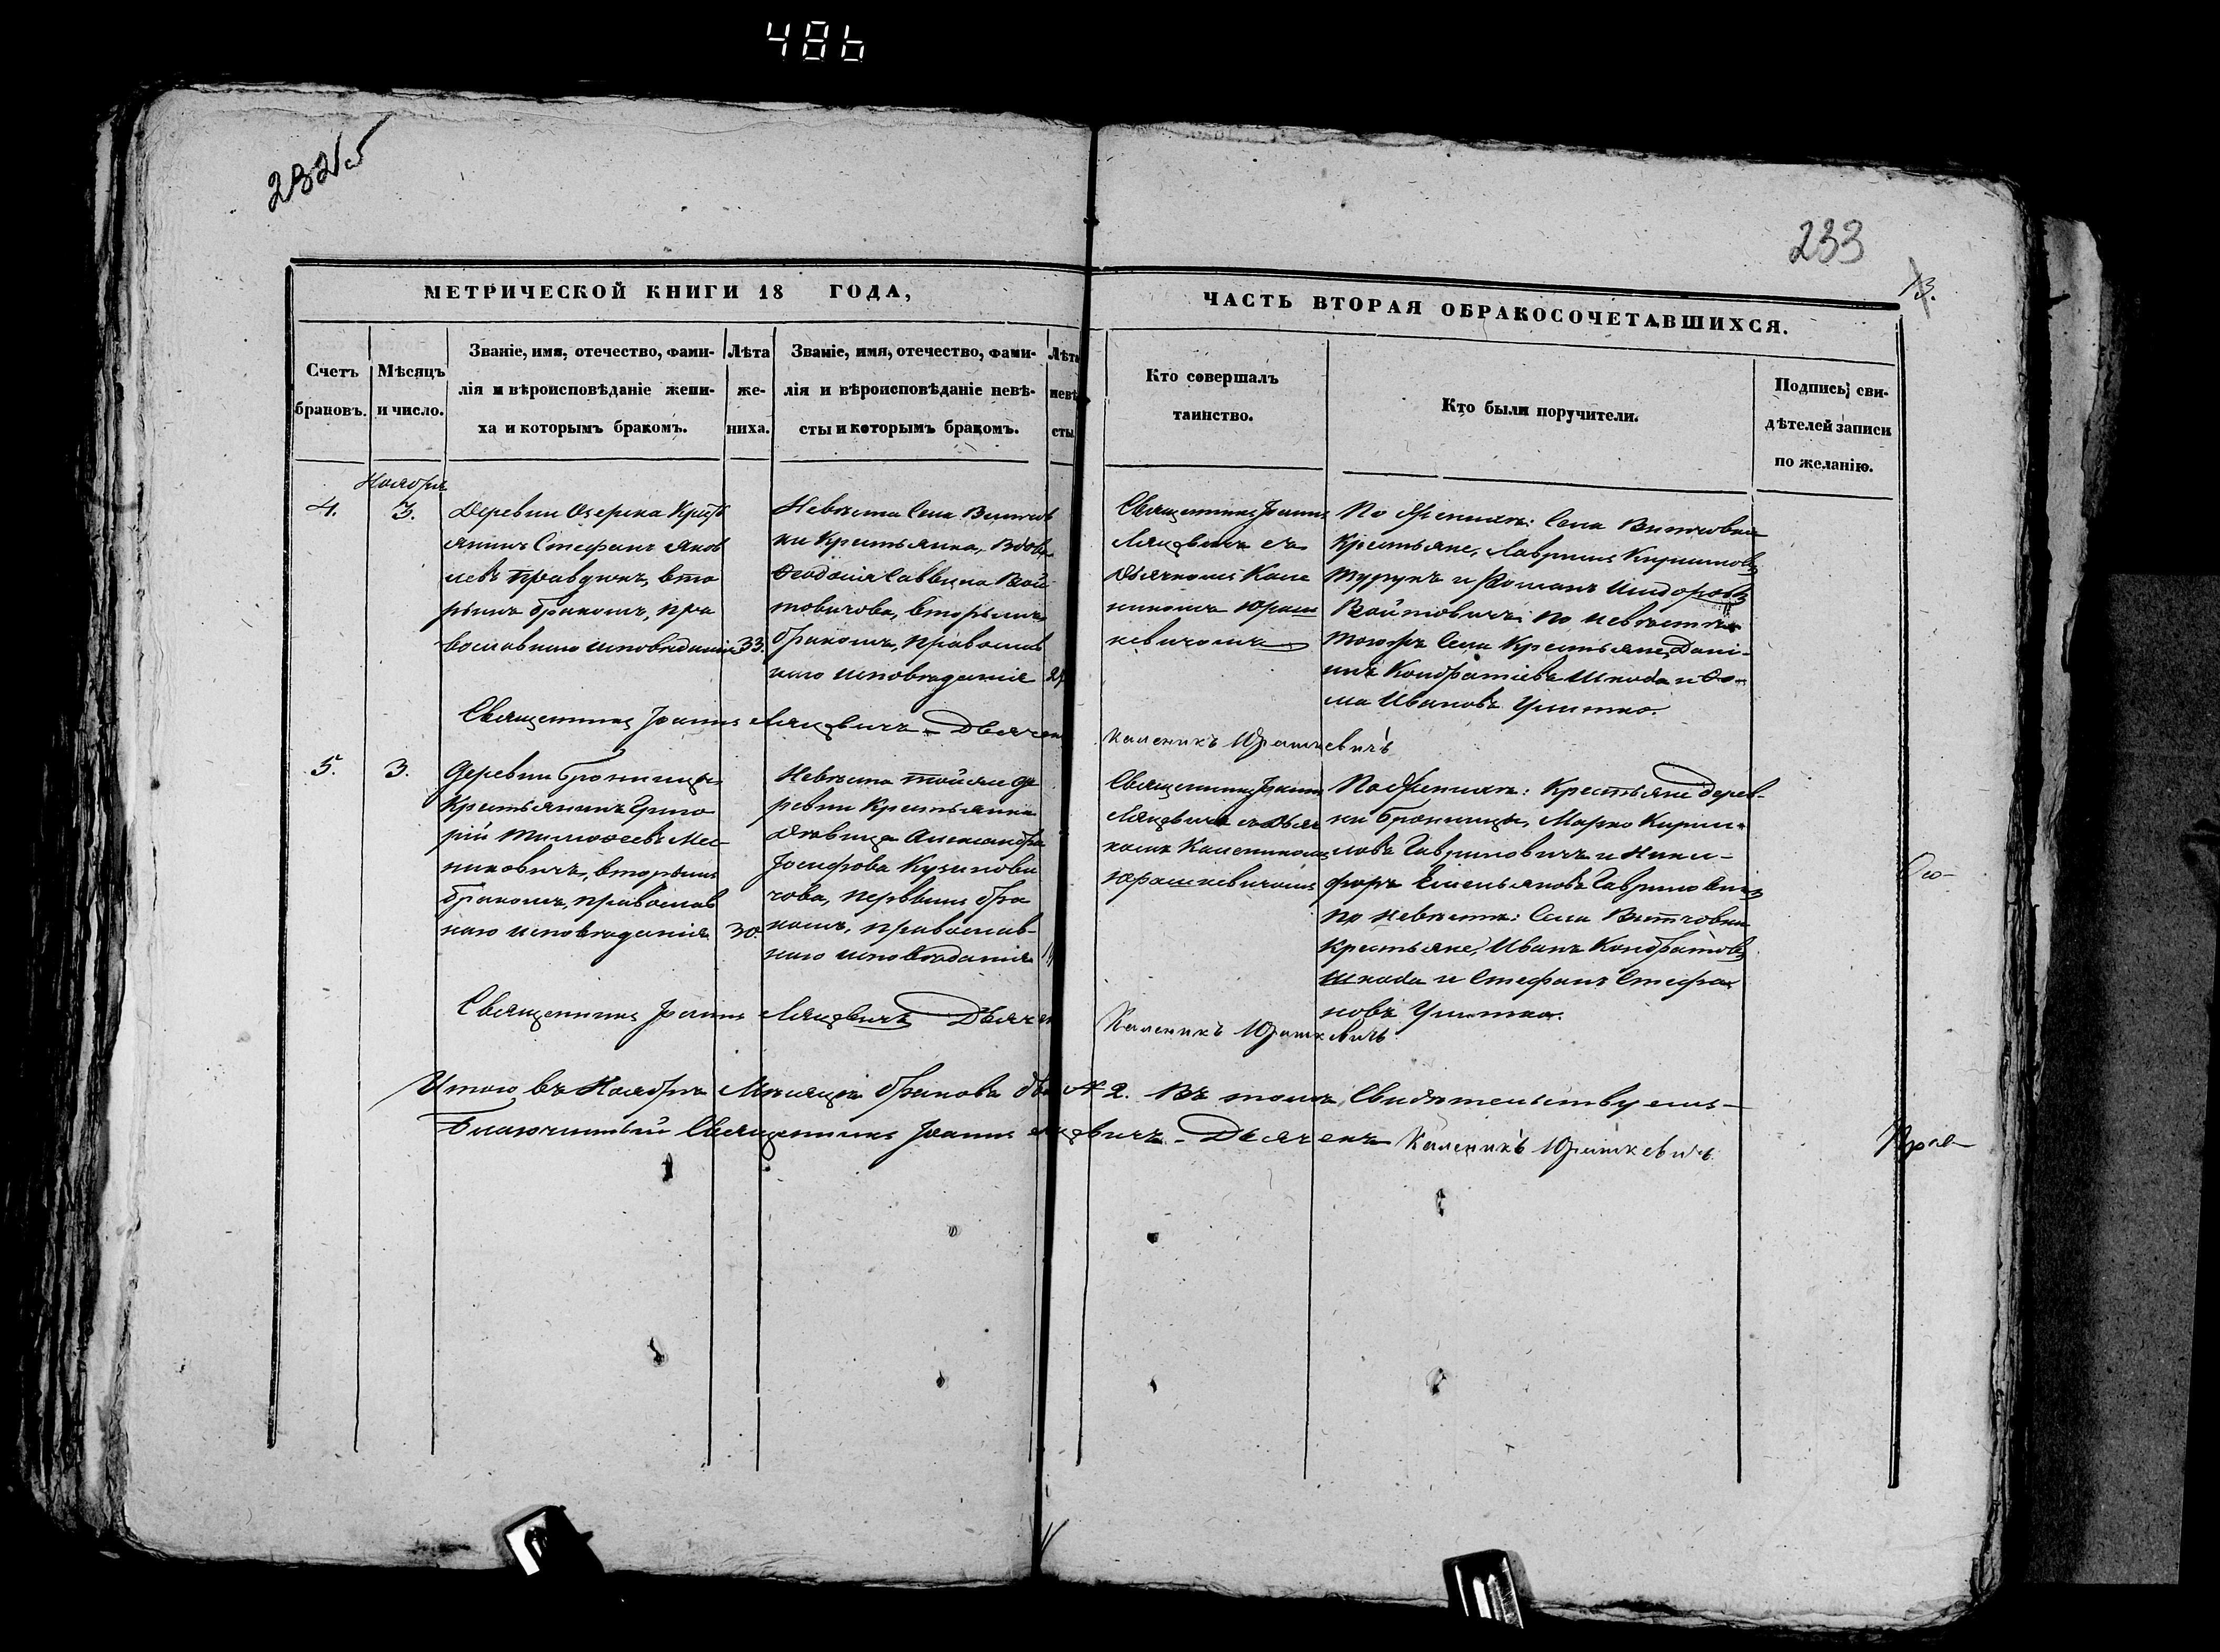 48b
232об
233
13.
МЕТРИЧЕСКОЙ КНИГИ 18 ГОДА,
ЧАСТЬ ВТОРАЯ ОБРАКОСОЧЕТАВШИХСЯ.
Счетъ
браковъ.
Мѣсяцъ
и число.
Званіе, имя, отечество, фами-
лія и вѣроисповѣданіе жени-
ха и которымъ бракомъ.
Лѣта
же-
ниха.
Званіе, имя, отечество, фами-
лія и вѣроисповѣданіе невѣ-
сты и которымъ бракомъ.
Лѣта
невѣ
сты
Кто совершалъ
таинство.
Кто были поручители.
Подпись свн-
дѣтелей записи
по желанію.
4.
Ноября
3.
Деревни Озерка Кресть
янинъ Стефанъ Яков
левъ Правдюкъ, вто
рымъ бракомъ, пра
вославнаго исповѣданія
33.
Невѣста Села
ки Крестьянка, Вдова
Ѳеодосія Саввина Вой
товичова, вторымъ
бракомъ, православ
наго исповѣданія
Священникъ Іоаннъ
съ
Дьячкомъ Кале
никомъ Юраш
кевичомъ
По Женихѣ: Села
Крестьяне, Лаврины Кириловъ
Турукъ и Романъ Исидоровъ
Войтовичъ; По невѣстѣ
тогожъ Села Крестьяне, Дани-
илъ Кондратіевъ Шкода и Ѳо-
ма Ивановъ
Священникъ Іоаннъ Дьячекъ
Каленикъ Юрашкевичъ
5.
3.
Деревни Броницы
Крестьянинъ Григо
рій Тимоѳеевъ Мел
никовичъ, вторымъ
бракомъ, православ
наго исповѣданія
30.
Невѣста тойже де
ревни Крестьянка
дѣвица Александра
Іосифова Кузмови
чова, первымъ бра
комъ, православ-
наго исповѣданія
Священникъ Іоаннъ
съ Дьяч
комъ Калеником
Юрашкевичомъ
По Женихѣ: Крестьяне дерев-
ни Броницы, Марко Кирил-
ловъ Гавриловичъ и Ники-
форъ Емельяновъ Гавриловичъ
По невѣстѣ: Села
Крестьяне, Иванъ Кондратовъ
Шкода и Стефанъ Стефа
новъ
Священникъ Іоаннъ Дьячекъ
Каленикъ Юрашкевичъ
Итого въ Ноябрѣ Мѣсяцѣ браковъ два № 2. Въ томъ свидѣтельствуемъ
Благочинный Священникъ Іоаннъ Дьячекъ Каленикъ Юрашкевичъ